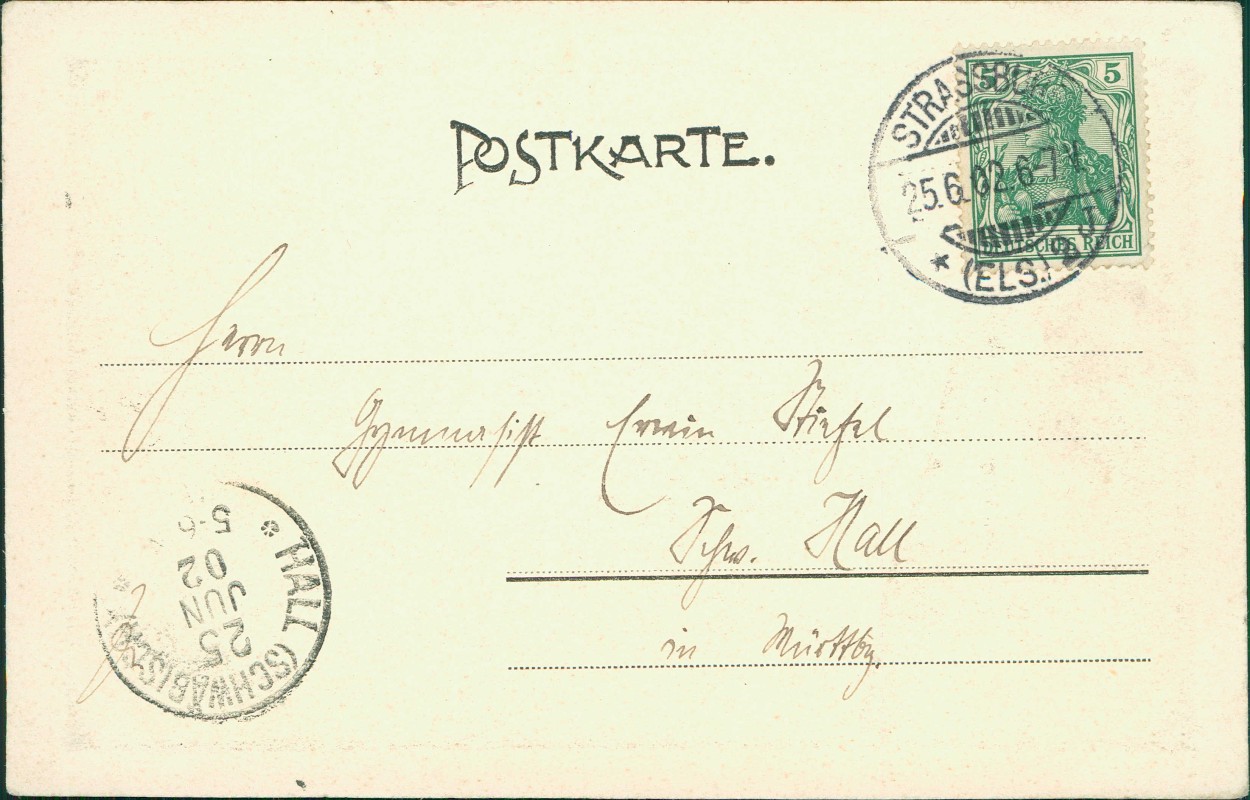 POSTKARTE.
5 5
DEUTSCHES REICH
STRASSBURG
25.6.02.6-7
* (ELS.) 2
Herrn
Gymnasist Erwin Stiefel
Schw. Hall
in Württbg.
* HALL (SCHWÄBISCH)
25
JUN
02
5-6